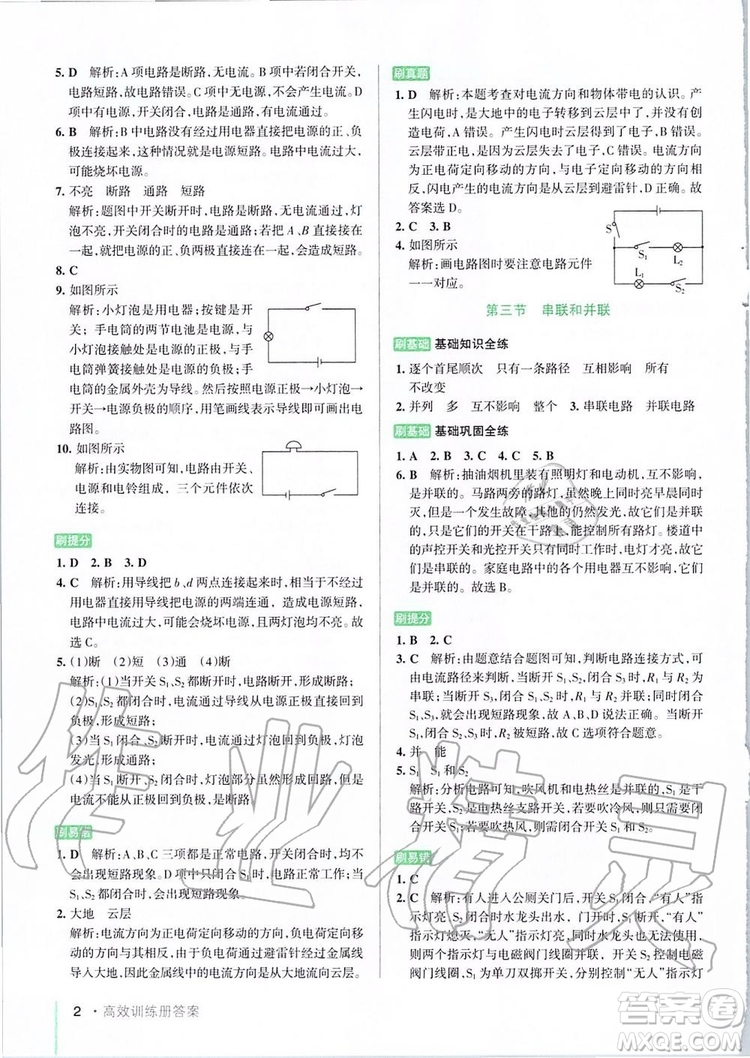 5. D　解析:A 项电路是断路,无电流。B 项若闭合开关,
电路短路,故电路错误。C 项无电源,不会产生电流。D
项为通路,电路中有电流,故选 D。
6. B　解析:B 中电路没有经过用电器直接把电源的正、负极
连接起来,这种情况就是电源短路。电路中电流过大,可
能烧坏电源。
7. 不亮　断路　通路　短路
解析:题图中开关断开时,电路是断路,没有电流通过,灯
泡不亮,开关闭合时形成通路。把电源两极直接连接在一
起,就把电源的正、负两极直接连在一起,会造成短路。
8. C
9. 如图所示
解析:小灯泡是用电器;按键是开
关;手电筒的两节电池是电源;
小灯泡接触处是电源的正极;手电
筒弹簧接触处是电源的负极;手电
筒的金属外壳为导线。按照电源正极→小灯泡→开
关→电源负极的顺序,用笔画线表示导线即可画出电
路图。
10. 如图所示
解析:由实物图可知,电路由开关、
电源和电铃组成,三个元件依次
连接。
刷提分
1. D　2. B　3. D
4. C　解析:用导线把 b、d 两点连接起来时,电流不经过
用电器直接将电源的两端连通,造成电源短路,电
路中电流过大,易烧坏电源,且两灯泡均不亮。故
选 C。
5. (1)断　(2)短　(3)通　(4)断
解析:(1)当开关 S₁、S₂ 都断开时,电路断开,形成断路;
(2)S₁、S₂ 都闭合时,电流通过开关 S₂ 直接流回电源负
极,形成短路;
(3)当 S₁ 闭合、S₂ 断开时,电流通过灯泡形成回路,灯泡
发光,形成通路;
(4)当 S₁ 断开、S₂ 闭合时,没有电流通过灯泡,灯泡不
发光,形成断路。
刷易错
1. D　解析:A、B、C 三项都是正常电路,开关闭合时,均不
会出现短路现象。D 项中开关 S 闭合后会将电源短路,
会出现短路故障,引起导线过热甚至造成火灾,在实际工
作中不允许出现。
2. 大地　云层
解析:电流方向为正电荷定向移动的方向,负电荷定向移
动的方向与其相反,由于负电荷通过避雷针经过金属线
导入大地,因此金属线中的电流方向是由大地流向云层。
2 · 高效训练册答案
刷真题
1. D　解析:本题考查对电流方向和物体带电的认识。产
生闪电时,是大地中的电子转移到云层上的,并没有创
造电荷,A 错误。产生闪电时云层得到了电子,B 错误。
云层带正电,是因为云层失去了电子,C 错误。电流方向
为正电荷定向移动的方向,与负电荷定向移动的方向相
反,闪电产生的电流方向是从云层到避雷针,D 正确。故
答案选 D。
2. C　3. B
4. 如图所示
解析:画电路图时要注意电路元件
一一对应。
S
S₁　L₂
L₁　S₂
第三节　串联和并联
刷基础　基础知识全练
1. 逐个首尾顺次　只有一条路径　互相影响　所有
不改变
2. 并列　多　互不影响　整个　3. 串联电路　并联电路
刷基础　基础巩固全练
1. A　2. C　3. B　4. D　5. C
6. B　解析:抽油烟机里装有照明灯和电动机,互不影响,
是并联的。马路两旁的路灯,虽然同时亮同时
灭,但一个发生故障,其他的仍然发光,所以是并联的,
只是它们的开关控制所有的路灯。楼道中
的声控开关和光控开关只有同时闭合灯才亮,它们是
串联的。家庭电路中各用电器互不影响,它们是并
联的。故选 B。
刷提分
1. B　2. C
3. C　解析:由题意结合题图可知,判断电路连接方式,可
由电流路径来判断,当闭合 S₁、断开 S₂ 时,R₁ 与 R₂ 为
串联;当断开 S₁、闭合 S₂、S₃ 时,R₁ 与 R₂ 并联;闭合 S₁、
S₃,就会出现短路现象,故 A、B、D 说法正确。当断开
S₂、闭合 S₁、S₃ 时,R₂ 被短路,故 C 选项符合题意。
4. 并　能
5. S₁　S₁ 和 S₂
解析:分析电路可知,吹风机和电热丝是并联的,S₁ 是干路
开关,S₂ 是电热丝支路开关。若要吹冷风,则只闭合开关
S₁ 即可;若要吹热风,则需同时闭合开关 S₁ 和 S₂。
刷易错
1. C
2. C　解析:有人进入公厕关门后,开关 S₁ 闭合,“有人”指
示灯亮,S₂ 闭合时水龙头出水,门打开,S₁ 断开,“有人”
指示灯熄灭,“无人”指示灯亮,同时水龙头也不能再出
水。“有人”指示灯与“无人”指示灯互不影响且与电磁
阀门线圈并联,S₁ 为单刀双掷开关,“无人”指示灯与电磁
作业精灵
答案圈
MXQE.COM